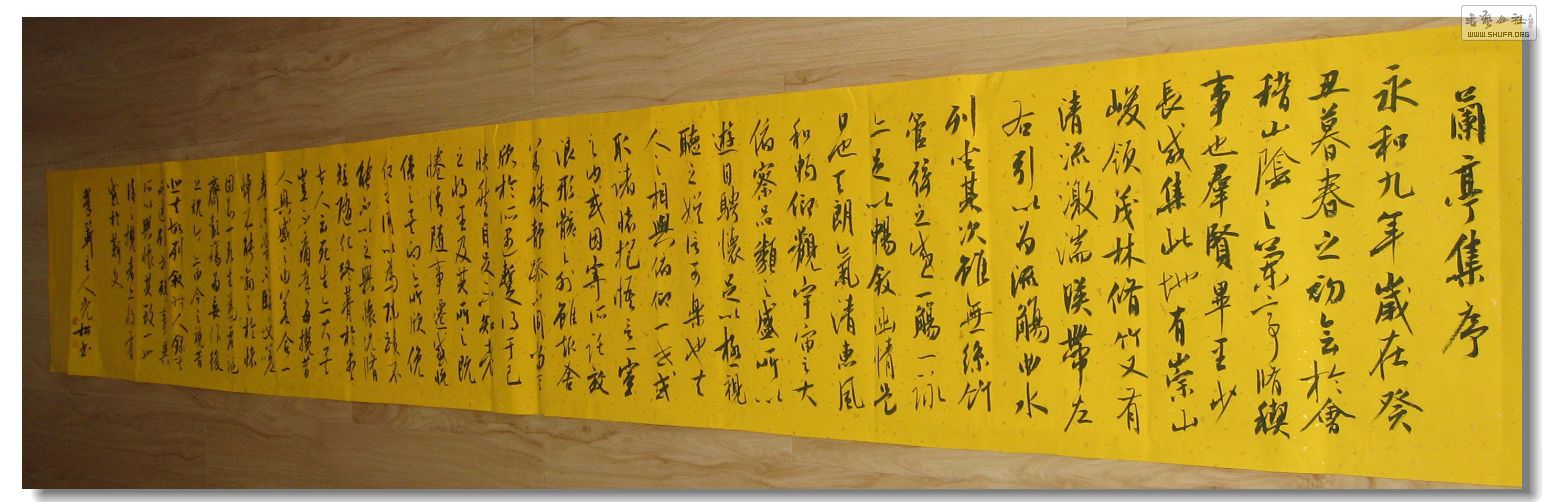 蘭亭集序
永和九年歲在癸
丑暮春之初會於會
稽山陰之蘭亭脩禊
事也羣賢畢至少
長咸集此地有崇山
峻領茂林脩竹又有
清流激湍暎帶左
右引以為流觴曲水
列坐其次雖無絲竹
管弦之盛一觴一詠
亦足以暢敘幽情是
日也天朗氣清惠風
和暢仰觀宇宙之大
俯察品類之盛所以
遊目騁懷足以極視
聽之娛信可樂也夫
人之相與俯仰一世或
取諸懷抱悟言一室
之內或因寄所託放
浪形骸之外雖取舍
萬殊靜躁不同當其
欣於所遇暫得于己
快然自足不知老
之將至及其所之既
惓情隨事遷感慨
係之矣向之所欣俛
仰之間以為陳跡不
能不以之興懷況脩
短隨化終期於盡
古人云死生亦大矣
豈不痛哉每攬昔
人興感之由若合一
契未嘗不臨文嗟
悼不能喻之於懷
固知一死生為虛誕
齊彭殤為妄作後
之視今亦由今之視昔
悲夫故列敘時人錄其
所述雖世殊事異
所以興懷其致一也
後之攬者亦將有
感於斯文
書藝公社
WWW.SHUFA.ORG